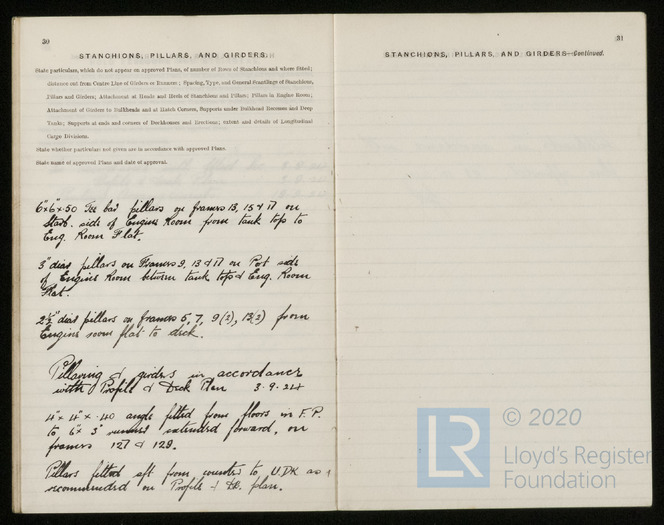 30
STANCHIONS, PILLARS, AND GIRDERS.
State particulars, which do not appear on approved Plans, of number of Rows of Stanchions and where fitted;
distance out from Centre Line of Girders or Runners; Spacing, Type, and General Scantlings of Stanchions,
Pillars and Girders; Attachment at Heads and Heels of Stanchions and Pillars; Pillars in Engine Room;
Attachment of Girders to Bulkheads and at Hatch Corners, Supports under Bulkhead Recesses and Deep
Tanks; Supports at ends and corners of Deckhouses and Erections; extent and details of Longitudinal
Cargo Divisions.
State whether particulars not given are in accordance with approved Plans.
State name of approved Plans and date of approval.
6"x6"x.50 Tee bar pillars on frames 13, 15 & 17 on
Starb. side of Engine Room from tank top to
Eng. Room Flat.
3" dia pillars on Frames 9, 13 & 17 on Port side
of Engine Room between tank top & Eng. Room
Flat.
2½" dia pillars on frames 5, 7, 9(2), 13(2) from
Engine room flat to deck.
Pillaring & girders in accordance
with Profile & Deck Plan 3.9.24
4"x 4"x .40 angle fitted from floors in F.P.
to 6"x 3" extended forward, on
frames 127 & 129.
Pillars fitted aft from counter to U.DK as
recommended on Profile & DK. plan.
31
STANCHIONS, PILLARS, AND GIRDERS—Continued.
LR
© 2020
Lloyd's Register
Foundation